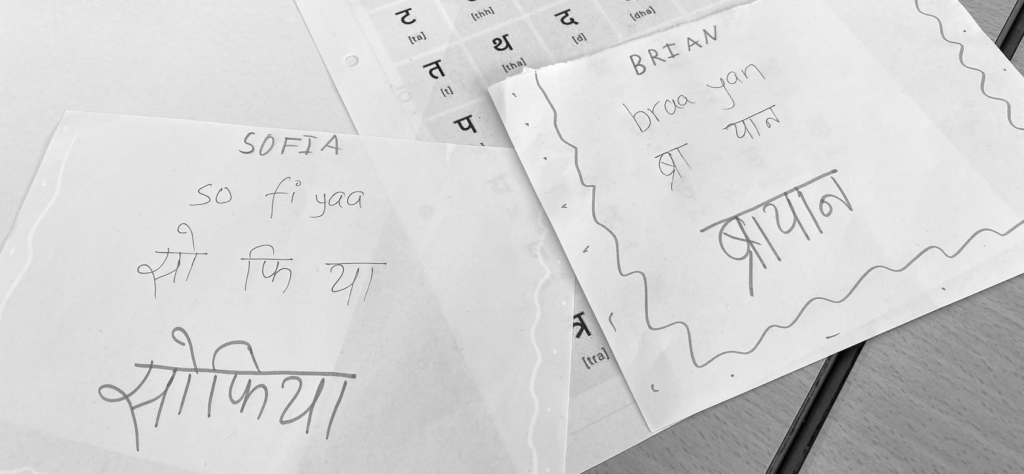 ट
[ta]
[thh]
द
[d]
[dha]
त
[t]
थ
[tha]
प
त्र
[tra]
SOFIA
so fi yaa
सो फि या
सोफिया
BRIAN
braa yan
ब्रा यान
ब्रायान